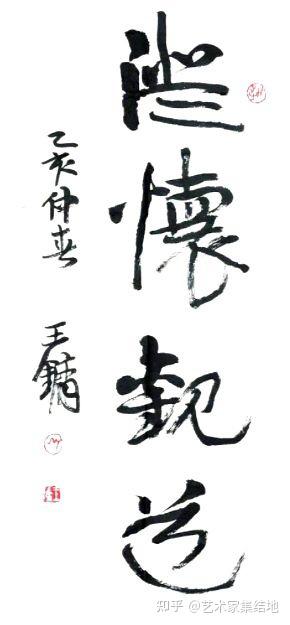 澄懷觀道
乙亥仲春 王鏞
知乎 @艺术家集结地